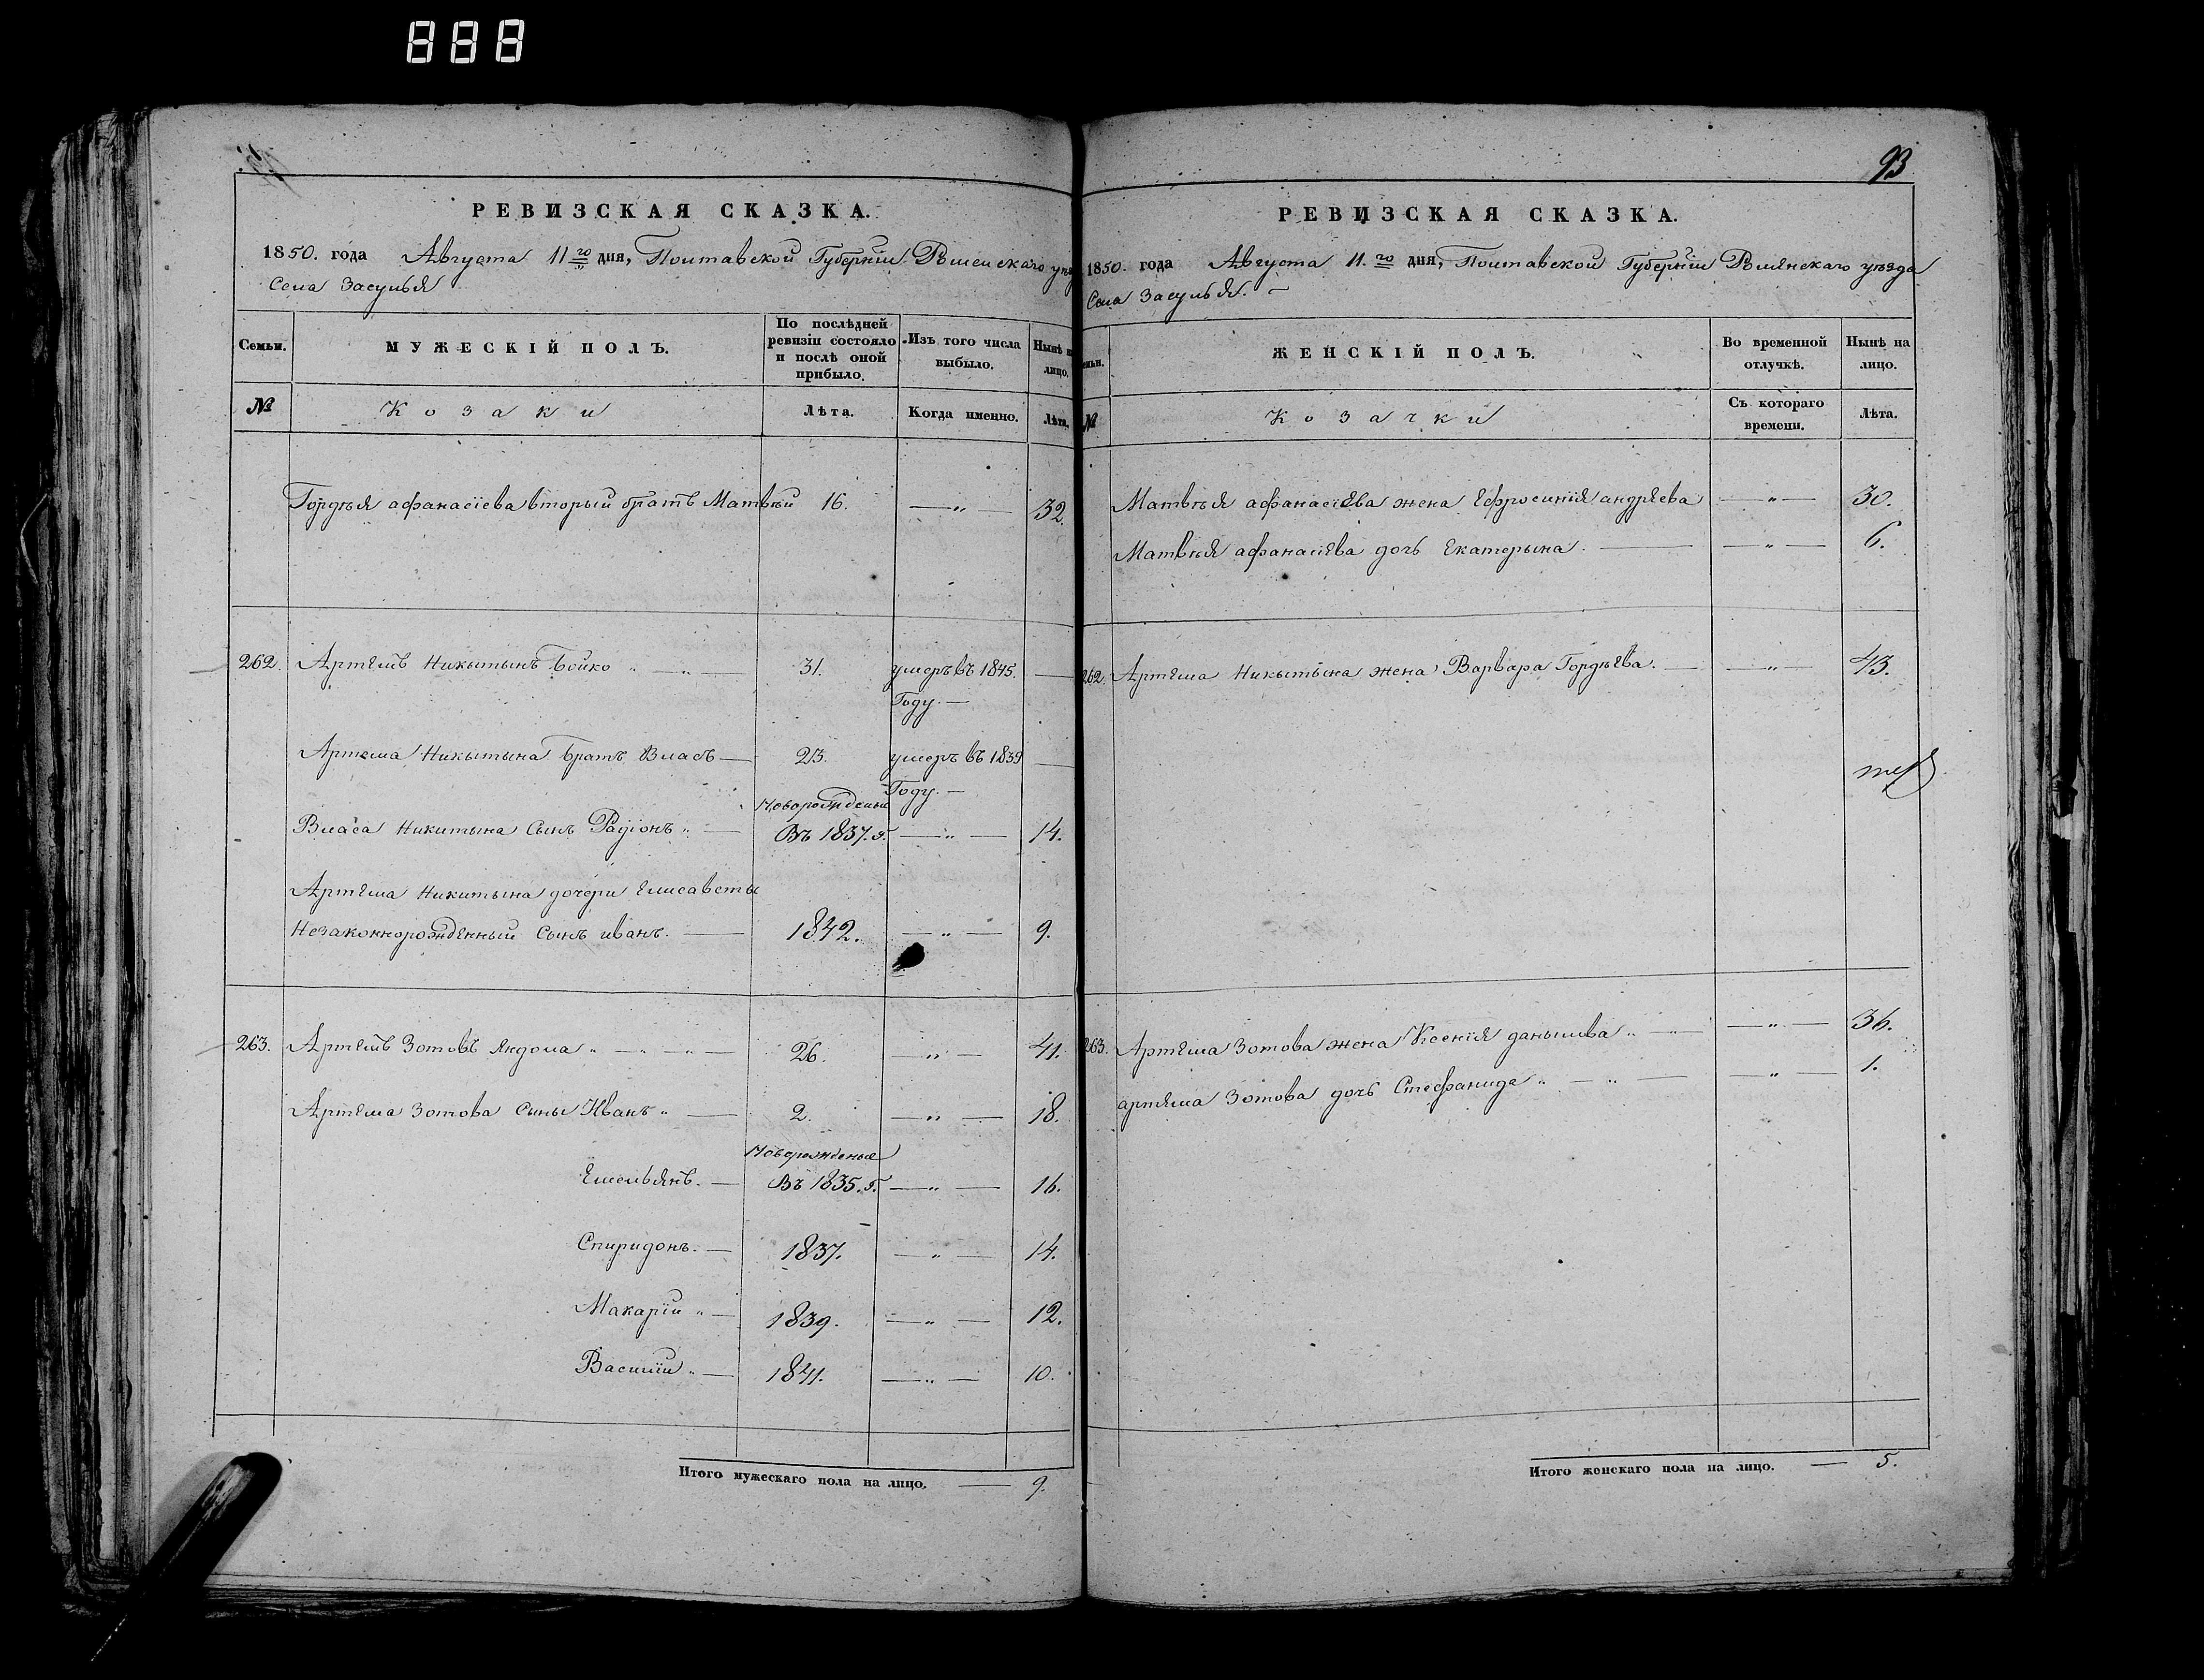 888
РЕВИЗСКАЯ СКАЗКА.
1850. года Августа 11го дня, Полтавской Губерніи Роменскаго уѣз
Села Засулья
Семьи.
МУЖЕСКІЙ ПОЛЪ.
По послѣдней ревизіи состояло и послѣ оной прибыло.
Изъ того числа выбыло.
Нынѣ н лицо.
№ Козаки Лѣта. Когда именно. Лѣта.
Гордѣя афанасіева вторый братъ Матвѣй 16. — „ — 32.
262. Артемъ Никытынъ Бойко „ — „ — 31. умеръ въ 1845. —
Году. —
Артема Никытына братъ Власъ — 23. умеръ въ 1839 —
Году. —
Новорожденый
Власа Никитына Сынъ Радіонъ „ — Въ 1837. г. — „ — 14.
Артема Никитына дочери Елисаветы
Незаконнорожденный Сынъ иванъ. — 1842. — „ — 9.
263. Артемъ Зотовъ Яндола „ — „ — „ — 26. — „ — 41.
Артема Зотова Сыны Иванъ „ — 2. — „ — 18.
Новорожденые
Емельянъ. — Въ 1835. г. — „ — 16.
Спиридонъ. — 1837. — „ — 14.
Макарій „ — 1839. — „ — 12.
Василій „ — 1841. — „ — 10.
Итого мужескаго пола на лицо. — 9.
93
РЕВИЗСКАЯ СКАЗКА.
1850. года Августа 11.го дня, Полтавской Губерніи Ромянскаго уѣзда
Села Засулья. —
емьи.
ЖЕНСКІЙ ПОЛЪ.
Во временной отлучкѣ.
Нынѣ на лицо.
№ Козачки Съ котораго времени. Лѣта.
Матвѣя афанасіева жена Ефросинія андреева — „ — 30.
Матвѣя афанасіева дочь Екатерына. — — „ — 6.
262. Артема Никытына жена Варвара Гордѣева. — — „ — 43.
263. Артема Зотова жена Ксенія данылова „ — — „ — 36.
артема Зотова дочь Стефанида „ — „ — — „ — 1.
Итого женскаго пола на лицо. — 5.